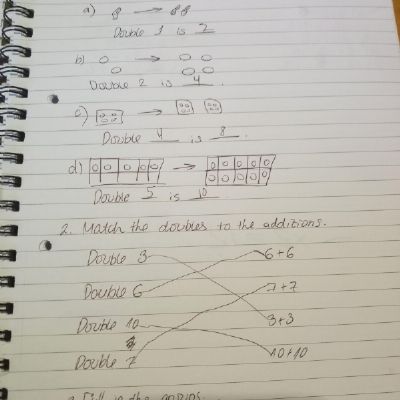 a)
Double is 2
b)
Double 2 is 4.
c)
Double 4 is 8.
d)
Double 5 is 10
2. Match the doubles to the additions.
Double 3 6+6
Double 6 7+7
Double 10 3+3
Double 7 10+10
Fill in the